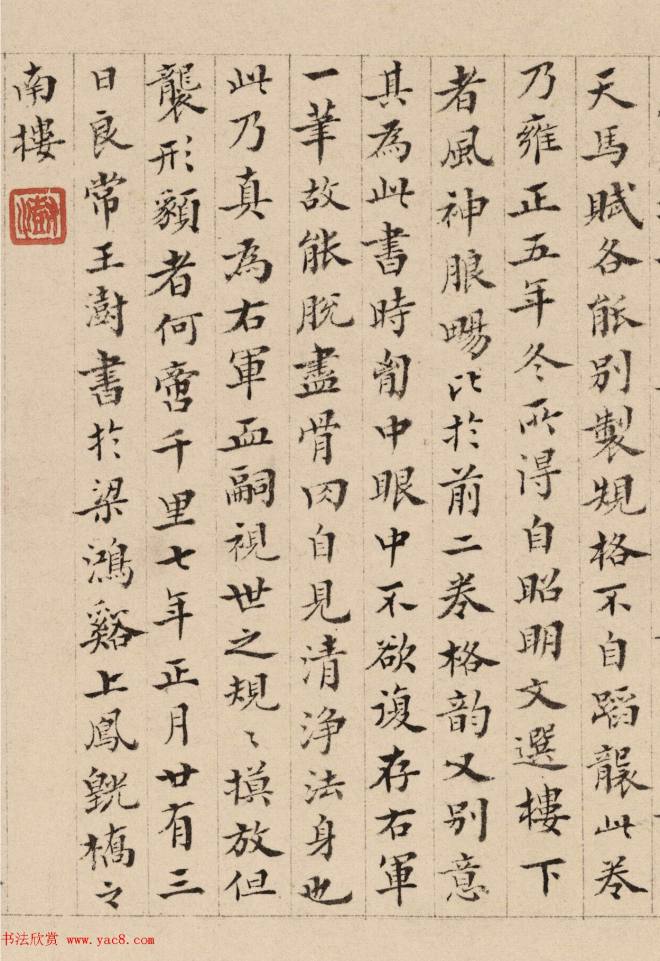 天馬賦各能別製規格不自蹈襲此卷
乃雍正五年冬所得自昭明文選樓下
者風神朗暢比於前二卷格韵又別意
其為此書時匈中眼中不欲復存右軍
一筆故能脫盡骨肉自見清浄法身也
此乃真為右軍血嗣視世之規〻摸放但
襲形貌者何啻千里七年正月廿有三
日良常王澍書於梁鴻谿上鳳橋之
南樓
澍
书法欣赏 www.yac8.com